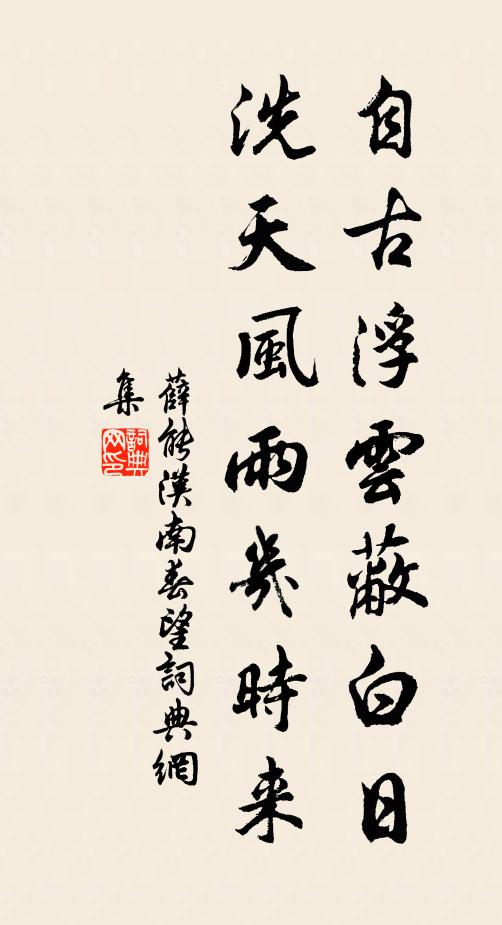 自古浮雲蔽白日
洗天風雨幾時来
薛能漢南春望詞典網
集
詞典网印